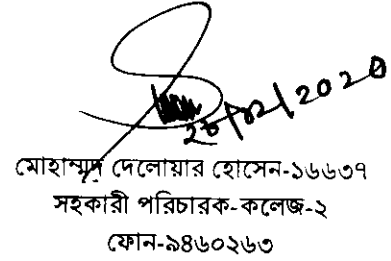 ২৮/০২/২০২০
মোহাম্মদ দেলোয়ার হোসেন-১৬৬৩৭
সহকারী পরিচারক-কলেজ-২
ফোন-৯৪৬০২৬৩